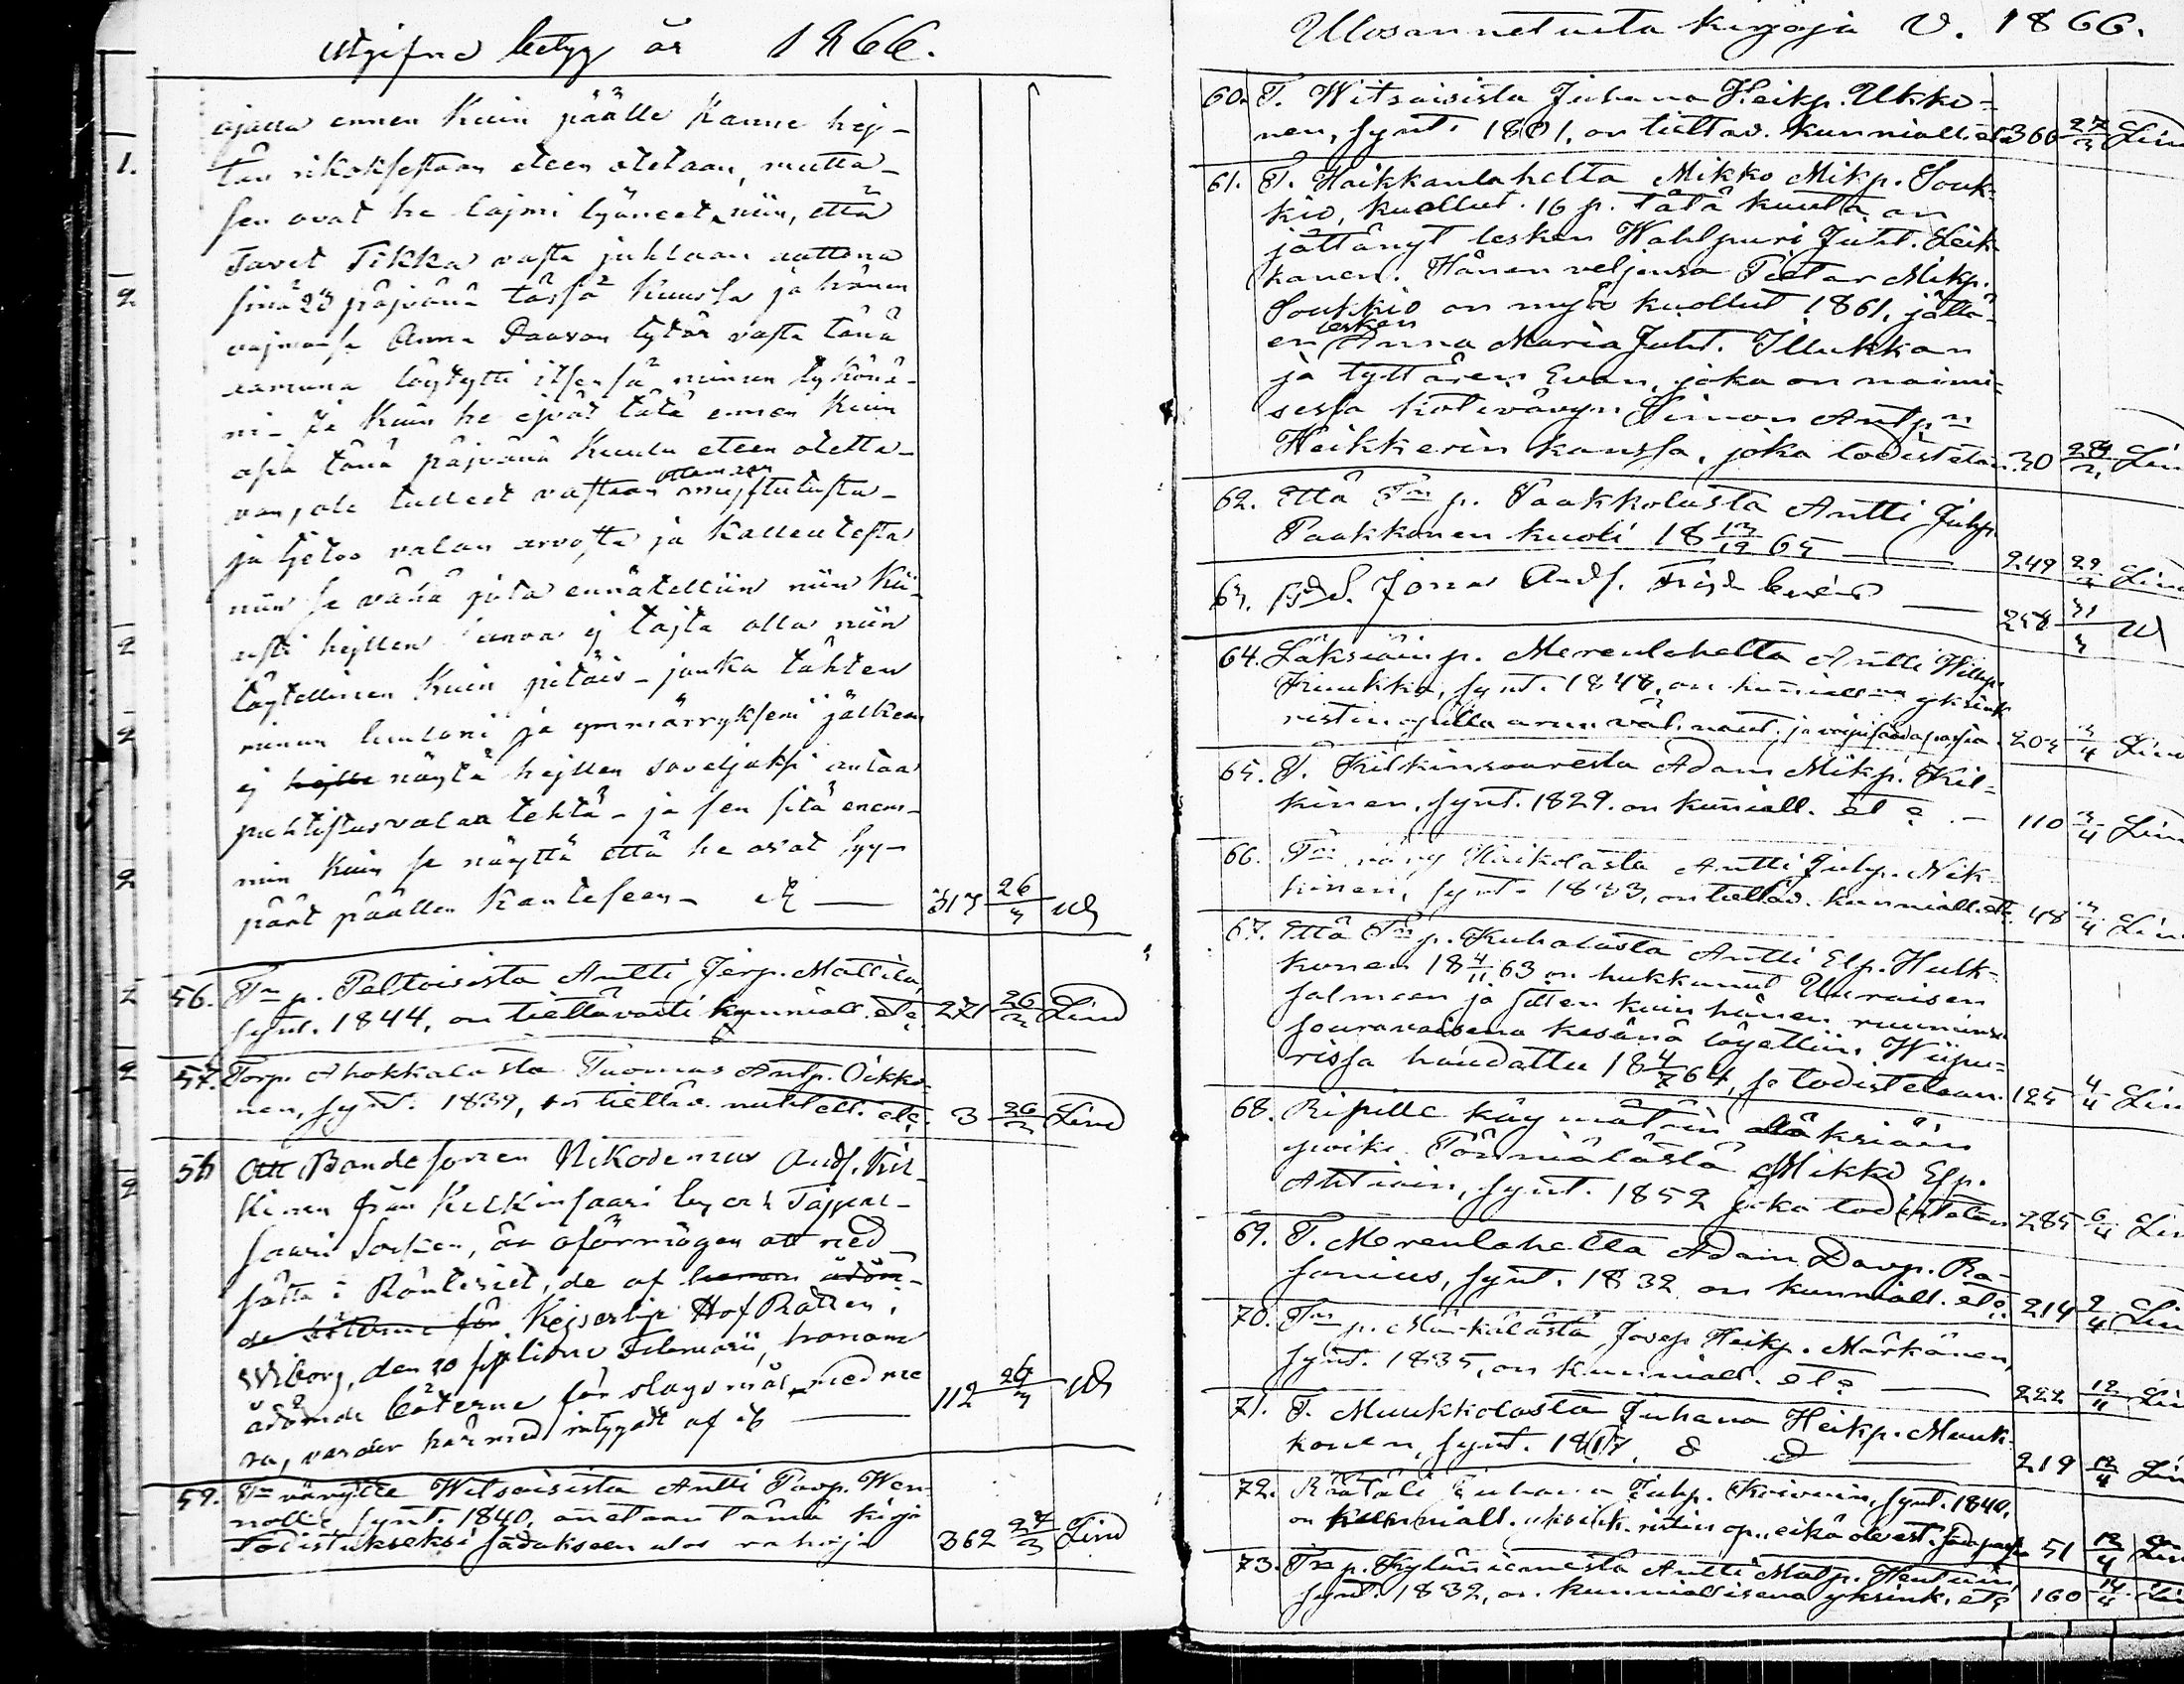 utgifna betyg år 1866.
ajalla ennen kuin päälle kanne hej-
tän rikoksestaan eteen otetaan, mutta
sen ovat he lajmi lyöneet, niin, että
Tavet Tikka vasta juhlaan aattona
sinä 23 päjvänä tässä kuussa ja hänen
vajmonsa Anna Paavon tytär vasta tänä
aamuna löytytti itsensä minun tykönä-
ni - Ja kuin he ejvät tätä ennen kuin
asia tänä päjvänä kuulu eteen otetta-
van, ole tulleet vastaan ottamaan
ja tjetoo valan arvosta ja kalleudesta
niin se vähä jota ennätettiin niin kii-
resti hejllen ej tajta olla niin
täydellinen kuin pitäis - jonka tähden
minun luuloni ja ymmärrykseni jälkeen
ej hejlle näytä hejllen soveljaksi antaa
puhdistus valaa tehtä - ja sen sitä enem-
min kuin se näyttä että he ovat syy-
päät päällen kanteseen - 317 26/3
56. Tn p. Peltoisista Antti Jerp. Mattila,
synt. 1844, on tiettävästi kunniall. etc. 271 26/3 Lind
57. Torp. Ahokkalasta Tuomas Antp. Oikko-
nen, synt. 1839, on tiettäv. nuhtett. etc. 3 26/3 Lind
58 Att Bondesonen Nikodemus Ands. Kil-
kinen från Kilkinsaari by och Tajpal-
saari Socken, är oförmögen att ned
sätta i Ränteriet, de af honom ådöm-
da böterne för Kejserlige Hof Rätten i
Wiborg, den 20 sistlidne Februarii, honom
ådömde böterne för slagsmål med me
ra, varder härmed intygadt af 112 26/3
59. Tn vävylle Witsaisista Antti Pavp. Wen
nolle synt. 1840, annetaan tämä kirja
Todistukseksi sädäkseen ulos rahoja 362 27/3 Lind
Ulosannetuita kirjoja V. 1866.
60. T. Witsaisista Juhana Heikp. Ukko-
nen, synt. 1801, on tiettäv. kunniall. etc 366 27/3 Lind
61. T. Haikkanlahelta Mikko Mikp. Souk-
kio, kuollut 16 p. tätä kuuta, on
jättänyt lesken Wahlpuri Juht. Leik
kanen. Hänen veljensä Pietar Mikp.
Soukkio on myös kuollut 1861, jättä-
en lesken Anna Maria Juht. Illukkan
ja tyttären Evan, joka on naimi-
sessa kotivävyn Simon Antp:n
Heikkerin kanssa, joka todistetan 30 28/3 Lin
62. Että Tn p. Paakkolasta Antti Juhp.
Paakkonen kuoli 18 13/12 65 249 29/3 Lind
63. S. Jonas Ands. 258 31/3
64. Läksiäin p. Merenlahelta Antti Willip.
synt. 1848, on kunniall yksink
ristin opilla arm väl. naut. ja voipi saada passia 203 3/4 Lind
65. T. Kilkinsaaresta Adam Mikp. Kil-
kinen, synt. 1829. on kunniall. etc. 110 3/4 Lind
66. Tn vävy Haikolasta Antti Juhp. Nik-
kinen, synt. 1833, on tiettäv. kunniall. etc. 48 3/4 Lin
67. Että Tn p. Kuhalasta Antti Elp. Hulk-
konen 18 4/11 63 on hukkunut Uuraisen
salmeen ja sitten kuin hänen ruumiinsa
seuraavaisena kesänä löyettiin, Wiipu-
rissa haudattu 18 4/7 64, se todistetaan. 125 4/4 Lin
68. Ripille käymätöin läksiäin
poika Törmälästä Mikko Elp.
Ahtiain, synt. 1852 joka todistetan 285 6/4 Lin
69. T. Merenlahelta Adam Davp. Ra-
sanius, synt. 1832 on kunniall. etc. 214 9/4 Lin
70. Tn p. Märkälästä Josep Heikp. Märkänen,
synt. 1835, on kunniall. etc 222 12/4 Lin
71. T. Muukkolasta Juhana Heikp. Muuk-
konen, synt. 1817, d d 219 12/4 Lin
72. Räätäli Juhana Juhp. Koivuin, synt. 1840,
on kunniall. yksink. ristin op., eikä ole est. saa passia 51 12/4 Lin
73. Tn p. Kyläniemestä Antti Matp. Hentuin,
synt. 1832, on kunniallisena yksink. etc 160 14/4 Lin